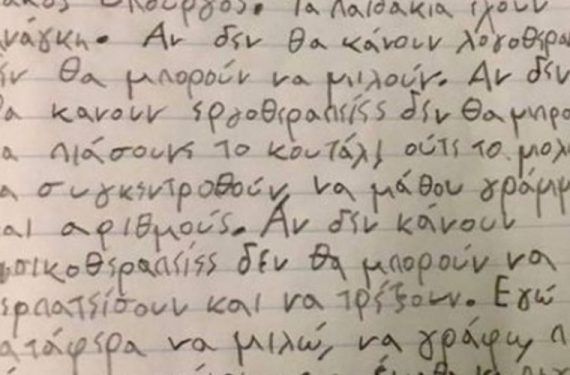 Υπουργός. Τα παιδάκια έχουν
ανάγκη. Αν δεν θα κάνουν λογοθερα
εν θα μπορούν να μιλούν. Αν δεν
θα κανουν εργοθεραπείες δεν θα μπρο
α πιάσουνε το κουτάλι ούτε το μολ
α συγκεντροθούν να μάθου γράμμ
αι αριθμούς. Αν δεν κάνουν
υσικοθεραπείες δεν θα μπορούν να
ερπατείσουν και να τρέξουν. Εγώ
ατάφερα να μιλώ, να γράφω, π